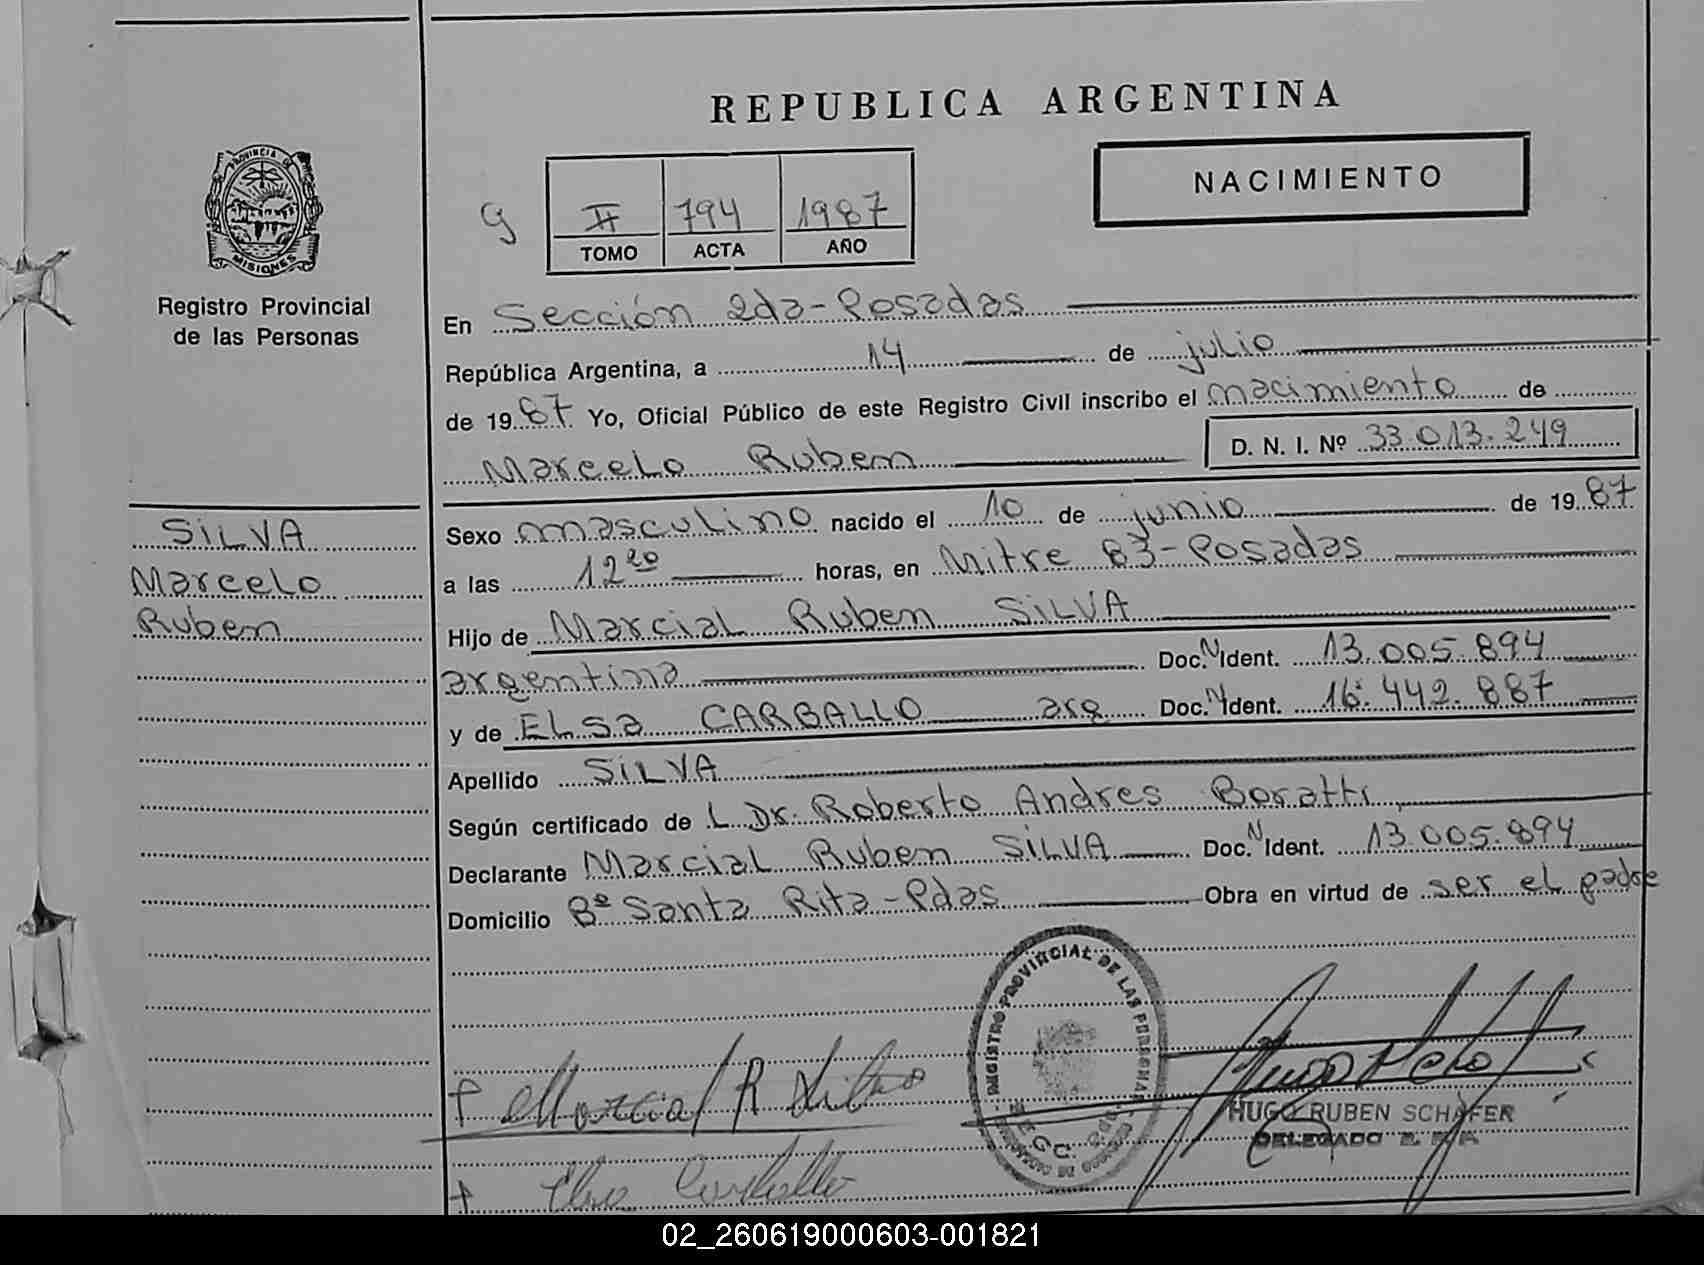 REPUBLICA ARGENTINA
NACIMIENTO
PROVINCIA DE
MISIONES
Registro Provincial
de las Personas
9
II 794 1987
TOMO ACTA AÑO
En Sección 2da-Posadas
República Argentina, a 14 de julio
de 1987 Yo, Oficial Público de este Registro Civil inscribo el nacimiento de
Marcelo Ruben D. N. I. Nº 33.013.249
SILVA
Marcelo
Ruben
Sexo masculino nacido el 10 de junio de 1987
a las 12 20 horas, en Mitre 83-Posadas
Hijo de Marcial Ruben SILVA
argentina Doc. N Ident. 13.005.894
y de ELSa CARBALLO arg Doc. N Ident. 16.442.887
Apellido SILVA
Según certificado de L Dr. Roberto Andres Boratti
Declarante Marcial Ruben SILVA Doc. N Ident. 13.005.894
Domicilio Bº Santa Rita-Pdas Obra en virtud de ser el padre
REGISTRO PROVINCIAL DE LAS PERSONAS
Marcial R Silva
HUGO RUBEN SCHAFER
DELEGADO
Elsa Carballo
02_260619000603-001821